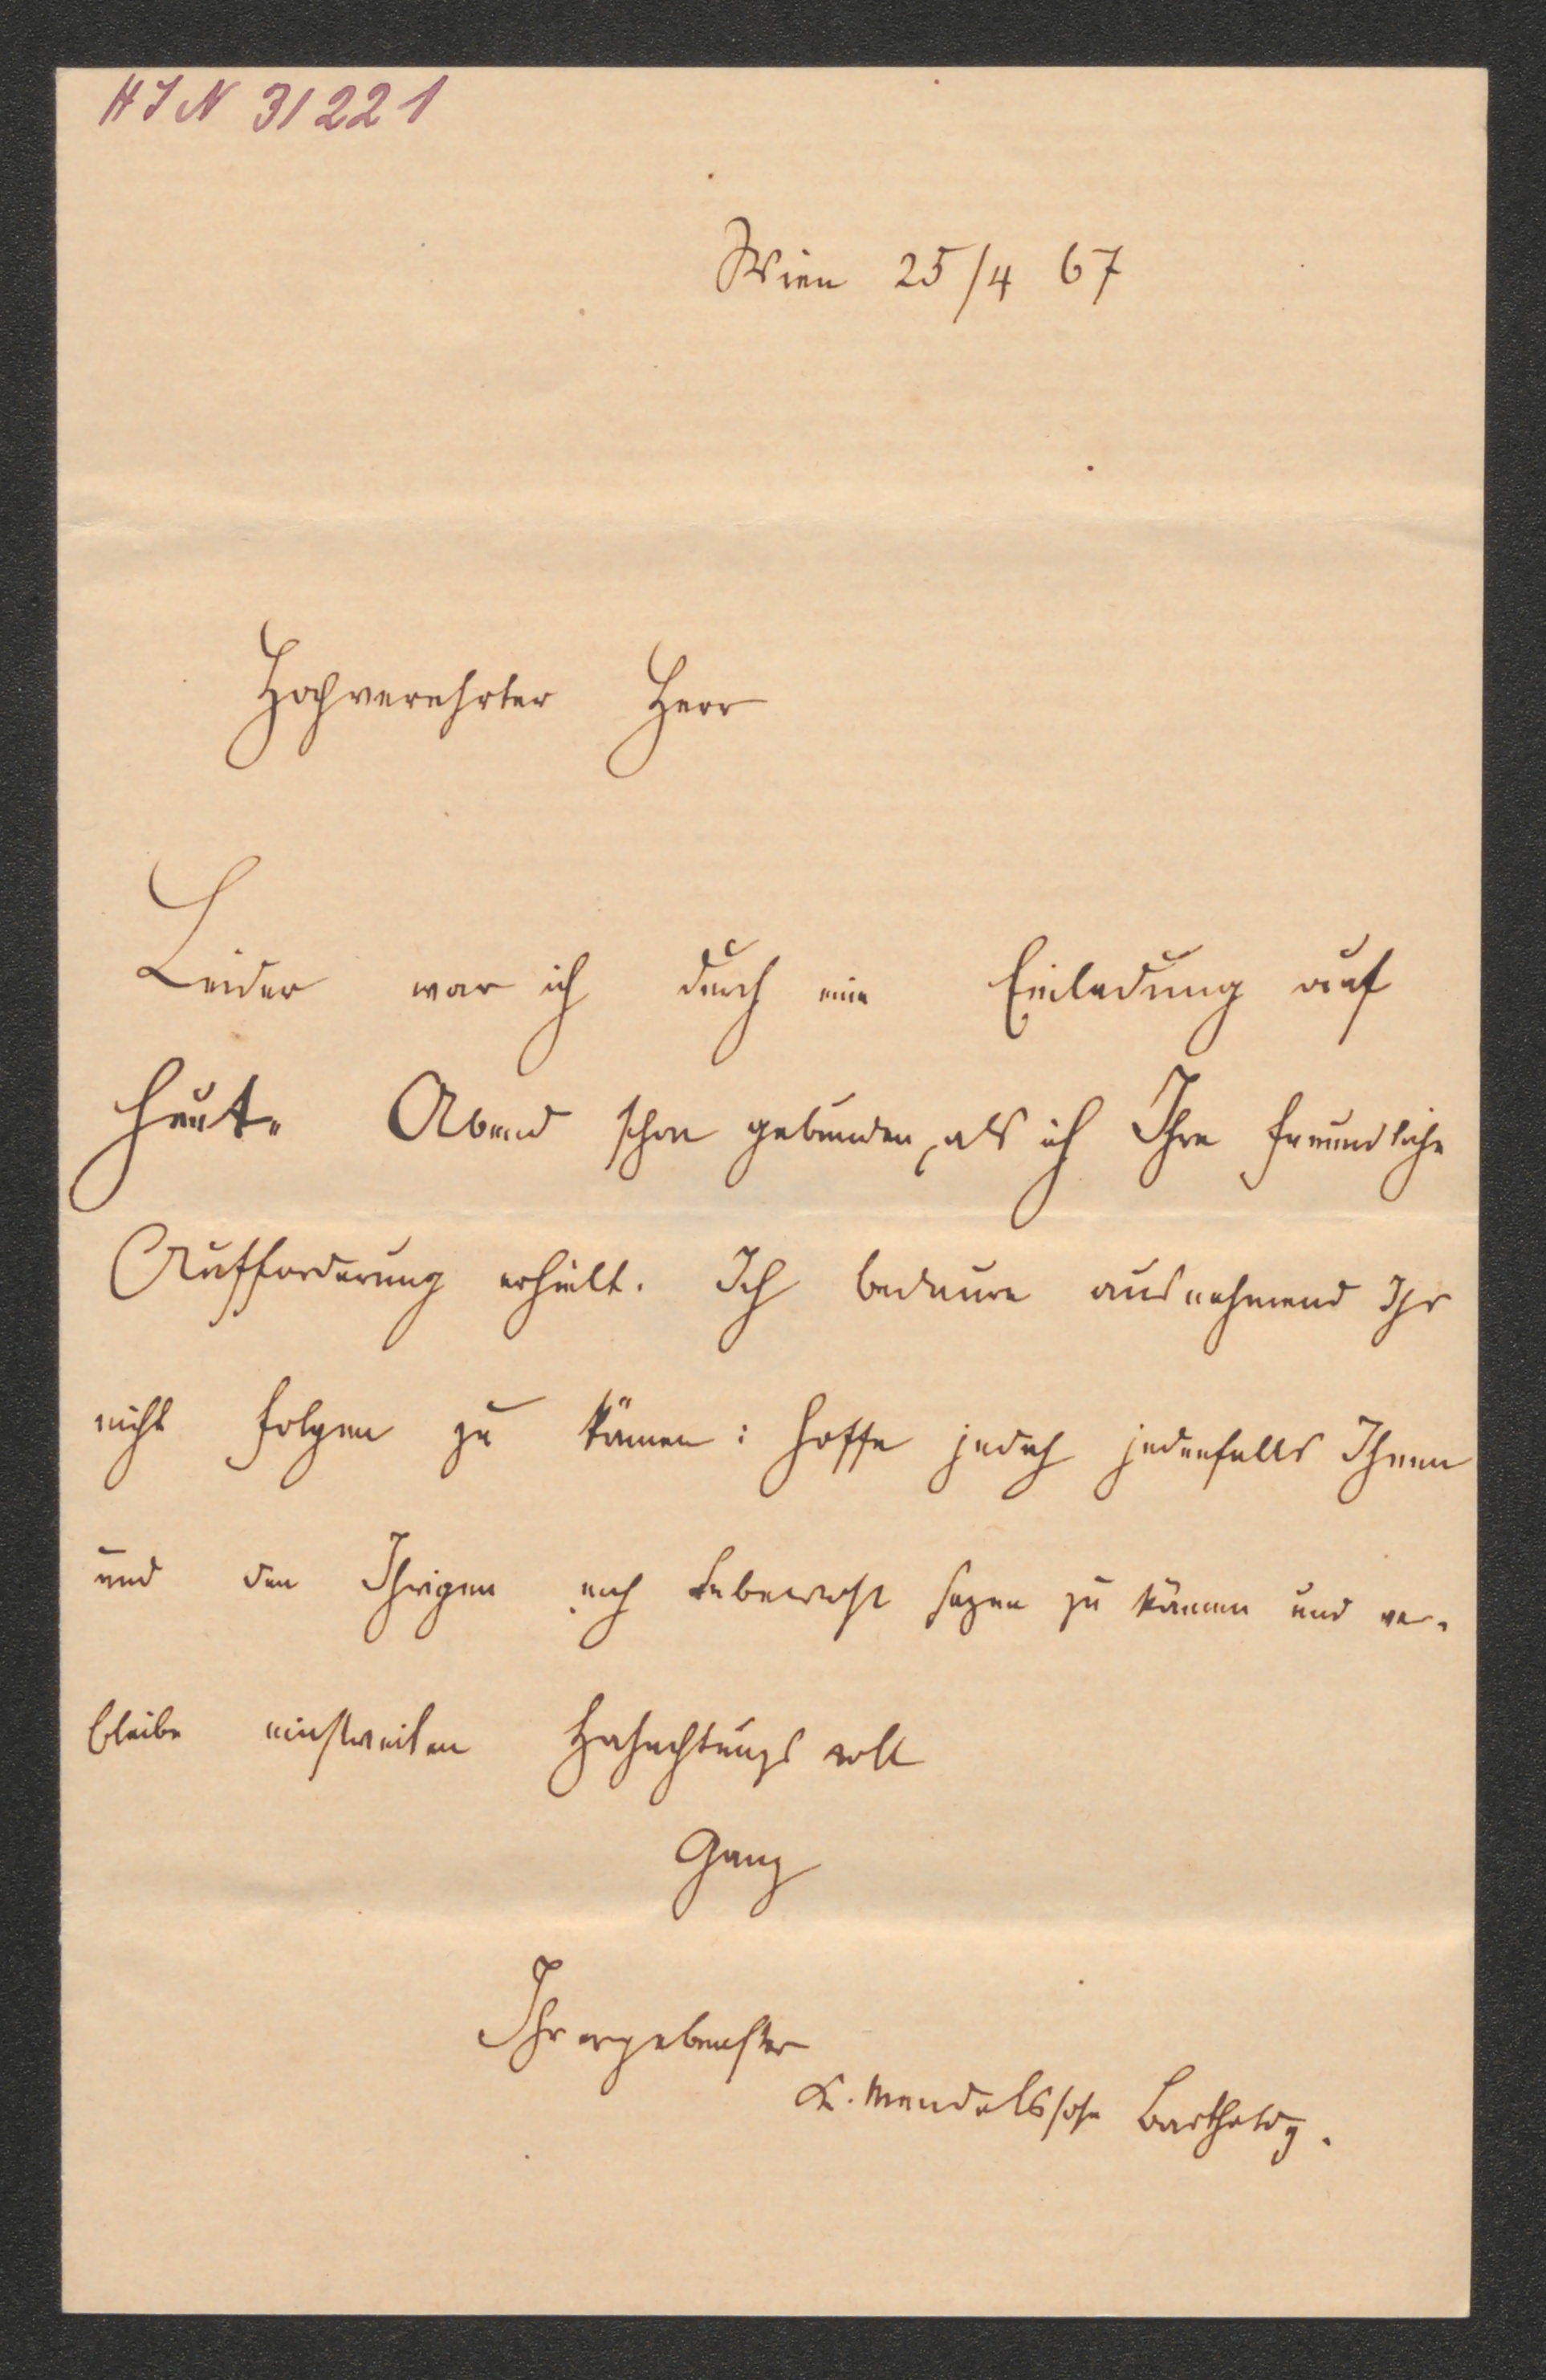 HIN 31221
Wien 25/4 67
Hochverehrter Herr
Leider war ich durch eine Einladung auf
heute Abend schon gebunden, als ich Ihre freundliche
Aufforderung erhielt. Ich bedaure ausnehmend Ihr
nicht folgen zu können: hoffe jedoch jedenfalls Ihnen
und den Ihrigen noch Lebewohl sagen zu können und ver-
bleibe einstweilen Hochachtungsvoll
Ganz
Ihr ergebenster
K. Mendelssohn Bartholdy.